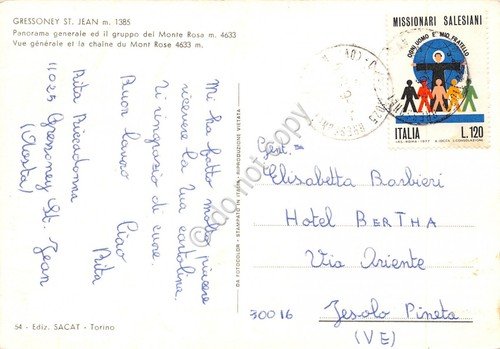 GRESSONEY ST. JEAN m. 1385
Panorama generale ed il gruppo del Monte Rosa m. 4633
Vue générale et la chaîne du Mont Rose 4633 m.
Mi ha fatto molto piacere
ricevere la tua cartolina.
Ti ringrazio di cuore.
Buon lavoro Ciao
Rita
Rita
11025 Gressoney St. Jean
(Aosta)
54 - Ediz. SACAT - Torino
DA FOTOCOLOR - STAMPATO IN ITALIA - RIPRODUZIONE VIETATA
MISSIONARI SALESIANI
OGNI UOMO E' MIO FRATELLO
ITALIA L.120
Gent.
Elisabetta Barbieri
Hotel BERTHA
Via Oriente
30016 Jesolo Pineta
(VE)
do not copy